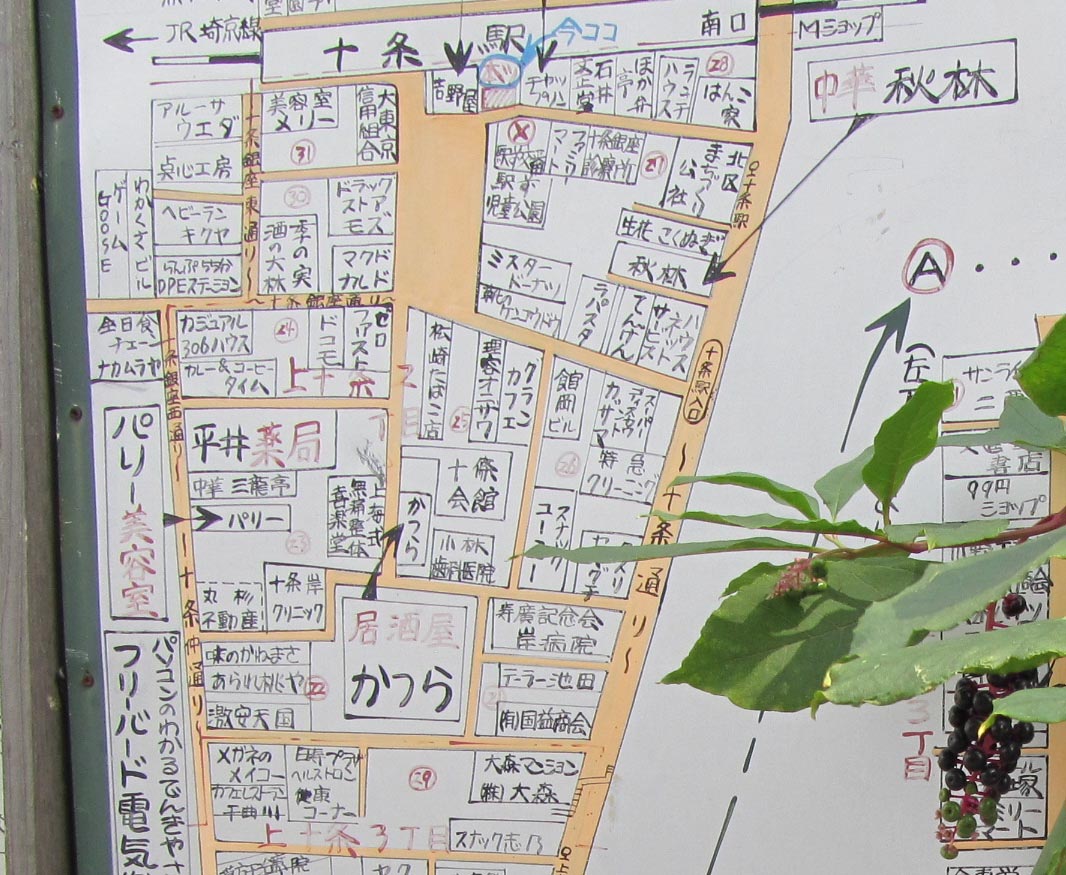 JR埼京線
十条駅
今ココ
南口
Mショップ
吉野屋
チャップリン
文正堂
石井
ほか弁亭
ランデ
ハウス
28
はんこ家
中華 秋林
アルーサ
ウエダ
貞心工房
美容室
メリー
31
大東京
信用組合
十条銀座東通り
駅前
児童公園
ファミリー
マート
十条銀座
診療所
27
北区
まちづくり
公社
至十条駅
わかくさビル
ゲームGOOSE
ヘビーラン
キクヤ
らんぷ55分
DPEステーション
30
季の実
酒の大林
ドラッグ
ストア
マクド
ナルド
生花 こくぬぎ
秋林
ミスター
ドーナツ
靴の
ラパスタ
てんげん
ハウス
ネット
サービス
〜十条銀座通り〜
全日食
チェーン
ナカムラヤ
カジュアル
306ハウス
カレー&コーヒー
タイム
24
ドコモ
ゼロ
ファースト
上十条2
丁目
松崎たばこ店
理容オニザワ
25
クラン
カフェ
館岡
ビル
スーパー
ディスカウ
カッサマ
26
特急
クリーニング
十条駅入口
十条銀座西通り
パリー美容室
平井薬局
中華 三龍亭
パリー
23
上梅式
無痛整体
春薬堂
十條
会館
かつら
小林
歯科医院
スナック
ユーミー
〜十条通り〜
丸杉
不動産
十条岸
クリニック
居酒屋
かつら
寿廣記念会
岸病院
テーラー池田
(有)国益商会
十条仲通り
味のかねまさ
あられ松や
22
激安天国
パソコンのわかるでんきや
フリーバード電気
メガネの
メイコー
カフェレストラン
日寿プラザ
ヘルストロン
健康
コーナー
29
大森マンション
(株)大森
上十条3丁目
スナック志乃
A
サンライ
書店
99円
ショップ
3丁目
塚
ミリー
マート